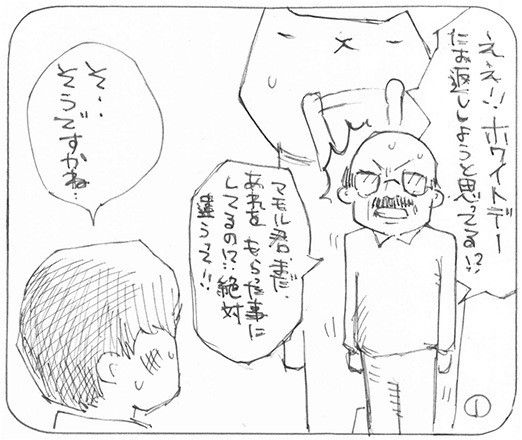 ええ!!ホワイトデー
にお返ししようと思ってる!?
マモル君、まだ
あれをもらった事に
してるの!?絶対
違うって!!
そ…
そうですかね…
1